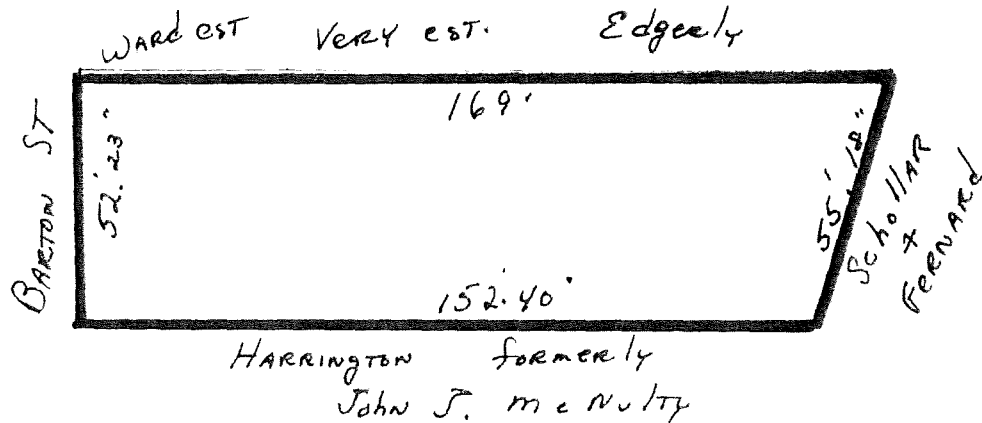 WARd EST VERY EST. Edgerly
169'
BARTON ST
52.'23"
55.'18"
SchollAR
+
FERNARd
152.'40"
HARRINgTON formerly
John J. McNulTy